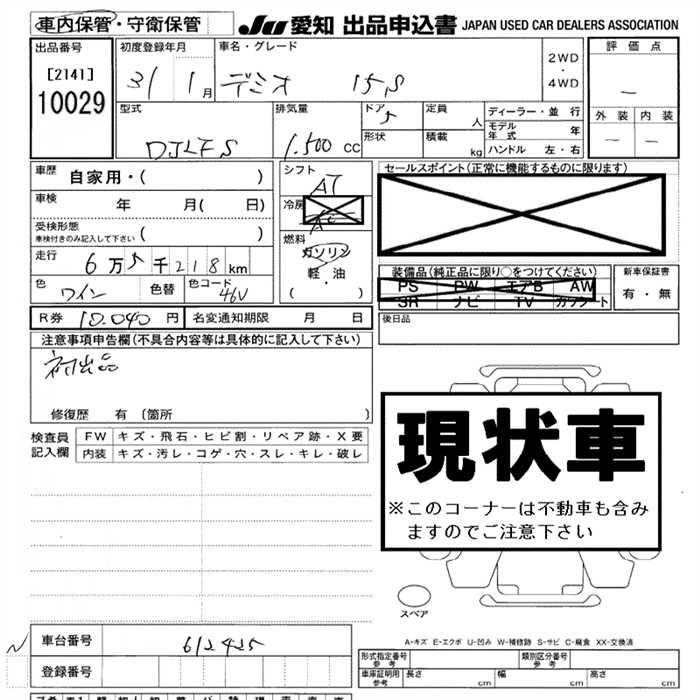 車内保管・守衛保管
JU 愛知 出品申込書 JAPAN USED CAR DEALERS ASSOCIATION
出品番号
[2141]
10029
初度登録年月
31 1月
車名・グレード
デミオ 15S
2WD
・
4WD
評価点
—
外装 内装
— —
型式
DJLFS
排気量
1.500 cc
ドア
5
形状
定員
人
積載
kg
ディーラー・並行
モデル年式 年
ハンドル 左・右
車歴 自家用・( )
車検 年 月( 日)
受検形態
車検付きのみ記入して下さい ( )
走行 6万5千218km
色 ワイン
色替
色コード 46V
シフト
AT
冷房
AC
燃料
ガソリン
・
軽油
( )
セールスポイント(正常に機能するものに限ります)
装備品(純正品に限り○をつけてください)
PS PW エアB AW
SR ナビ TV カワシート
新車保証書
有・無
R券 10.040 円
名変通知期限 月 日
後日品
注意事項申告欄(不具合内容等は具体的に記入して下さい)
初出品
修復歴 有 〔箇所 〕
検査員記入欄
FW キズ・飛石・ヒビ割・リペア跡・X要
内装 キズ・汚レ・コゲ・穴・スレ・キレ・破レ
現状車
※このコーナーは不動車も含み
ますのでご注意下さい
スペア
A-キズ E-エクボ U-凹み W-補修跡 S-サビ C-腐食 XX-交換済
車台番号 612425
登録番号
形式指定番号
参考
類別区分番号
参考
車庫証明用
参考
長さ cm 幅 cm 高さ cm